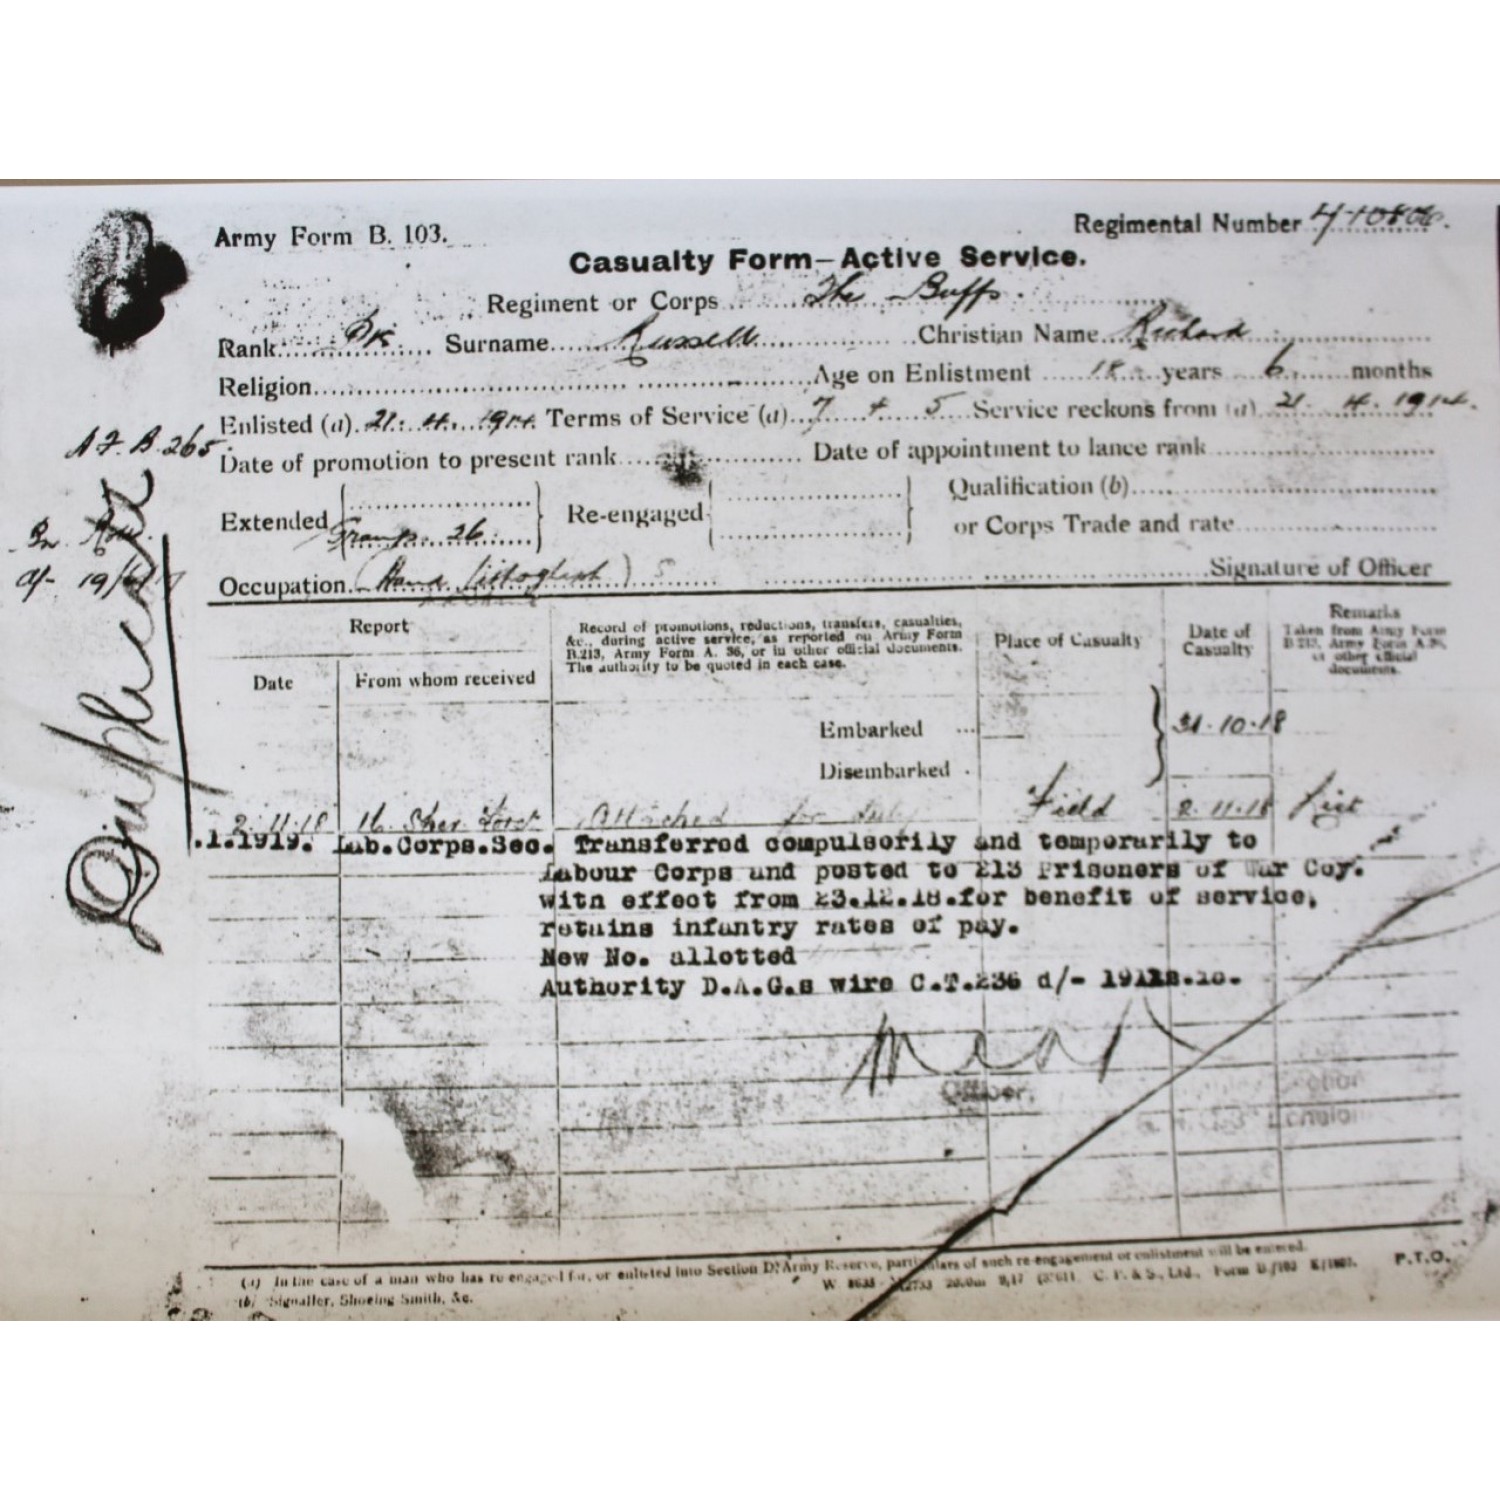 Army Form B. 103.
Regimental Number
Casualty Form—Active Service.
Regiment or Corps The Buffs.
Rank Pte Surname Russell Christian Name Richard
Religion Age on Enlistment 18 years 6 months
Enlisted (a) 21. 4. 1914 Terms of Service (a) 7 + 5 Service reckons from (a) 21. 4. 1914.
A.F.B.265
Date of promotion to present rank Date of appointment to lance rank
Extended Re-engaged Qualification (b)
or Corps Trade and rate
Occupation (Hand Signature of Officer
Duplicate
Report
Date From whom received
Record of promotions, reductions, transfers, casualties,
&c., during active service, as reported on Army Form
B.213, Army Form A. 36, or in other official documents.
The authority to be quoted in each case.
Place of Casualty
Date of
Casualty
Remarks
Taken from Army Form
B.213, Army Form A.36,
or other official
documents.
Embarked 31.10.18
Disembarked
2.11.18 Attached for Field 2.11.18
.1.1919. Lab.Corps.Sec. Transferred compulsorily and temporarily to
Labour Corps and posted to 213 Prisoners of War Coy.
with effect from 23.12.18.for benefit of service,
retains infantry rates of pay.
New No. allotted
Authority D.A.G.s wire C.T.236 d/-
Officer,
(a) In the case of a man who has re-engaged for, or enlisted into Section D. Army Reserve, particulars of such re-engagement or enlistment will be entered.
(b) Signaller, Shoeing Smith, &c.
C. F. & S., Ltd.,
P.T.O.